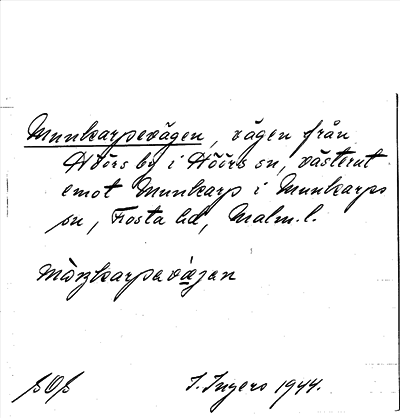 Munkarpevägen, vägen från
Höörs by i Höörs sn, västerut
emot Munkarp i Munkarps
sn, Frosta hd, Malm. l.
sOs
I. Ingers 1944.